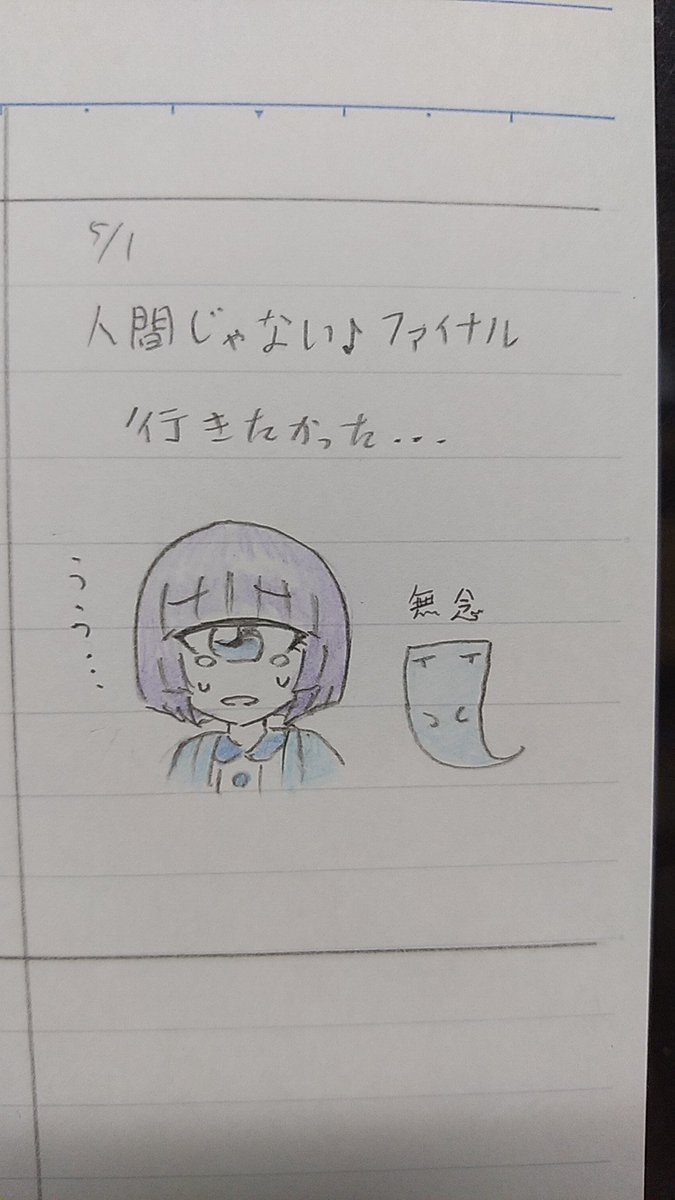 5/1
人間じゃない♪ファイナル
行きたかった...
うっうっ...
無念